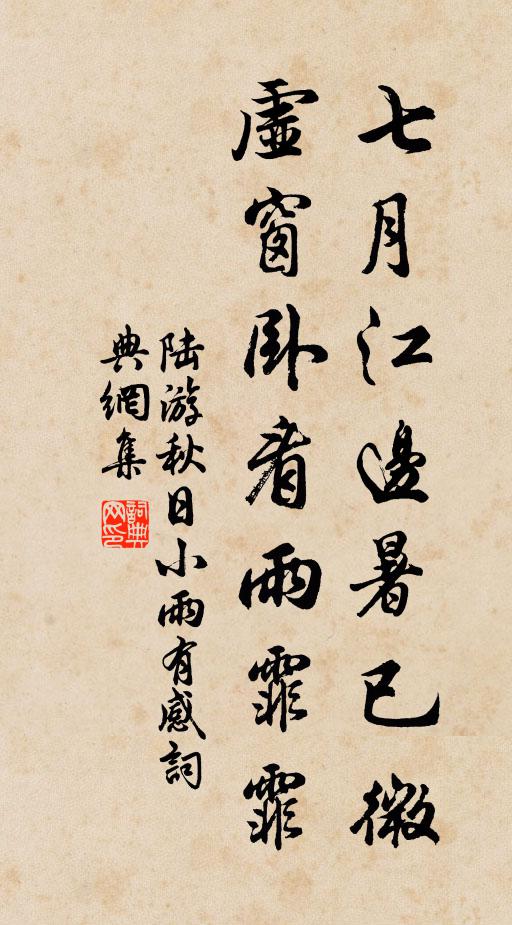 七月江邊暑已微
虛窗卧看雨霏霏
陆游秋日小雨有感詞
典網集
詞典网印